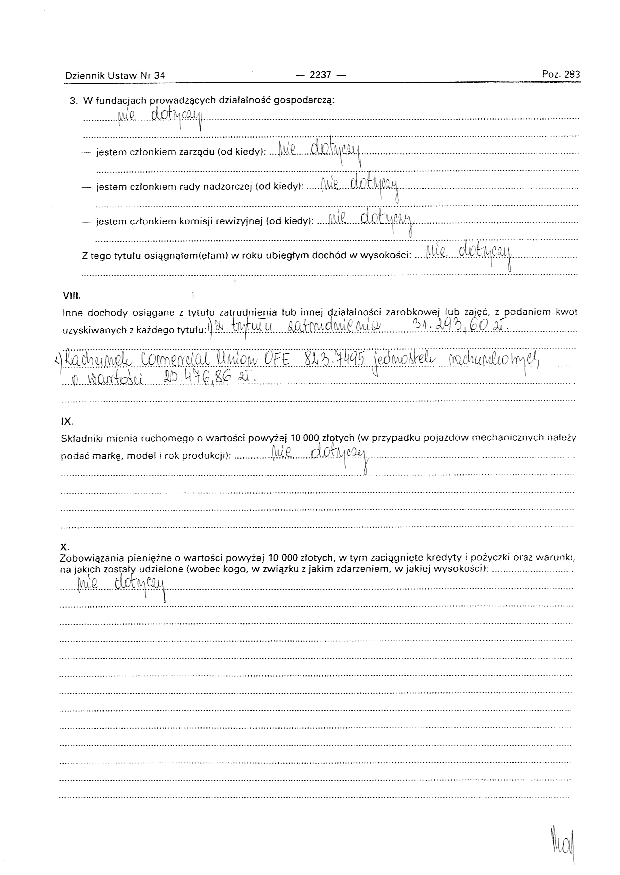 Dziennik Ustaw Nr 34 — 2237 — Poz. 283
3. W fundacjach prowadzących działalność gospodarczą:
nie dotyczy
— jestem członkiem zarządu (od kiedy): nie dotyczy
— jestem członkiem rady nadzorczej (od kiedy): nie dotyczy
— jestem członkiem komisji rewizyjnej (od kiedy): nie dotyczy
Z tego tytułu osiągnąłem(ęłam) w roku ubiegłym dochód w wysokości: nie dotyczy
VIII.
Inne dochody osiągane z tytułu zatrudnienia lub innej działalności zarobkowej lub zajęć, z podaniem kwot
uzyskiwanych z każdego tytułu: 1) z tytułu zatrudnienia 31.293,60 zł.
2) Rachunek Comercial Union OFE 823.7495 jednostek rachunkowych,
o wartości 20.476,86 zł.
IX.
Składniki mienia ruchomego o wartości powyżej 10 000 złotych (w przypadku pojazdów mechanicznych należy
podać markę, model i rok produkcji): nie dotyczy
X.
Zobowiązania pieniężne o wartości powyżej 10 000 złotych, w tym zaciągnięte kredyty i pożyczki oraz warunki,
na jakich zostały udzielone (wobec kogo, w związku z jakim zdarzeniem, w jakiej wysokości):
nie dotyczy